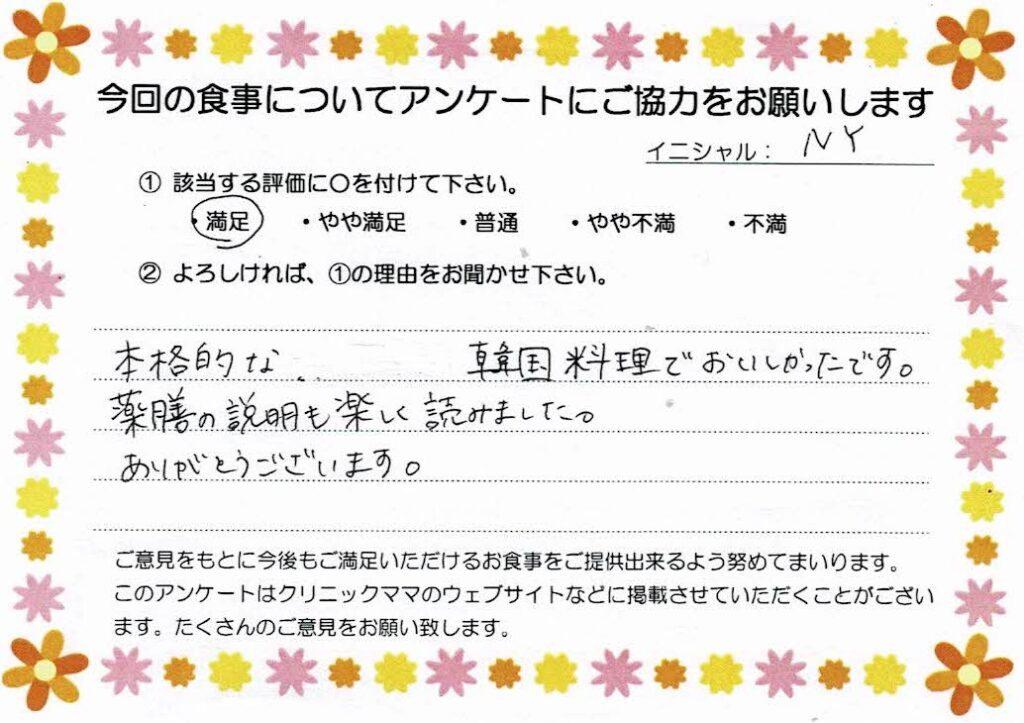 今回の食事についてアンケートにご協力をお願いします
イニシャル： NY
① 該当する評価に〇を付けて下さい。
・満足 ・やや満足 ・普通 ・やや不満 ・不満
② よろしければ、①の理由をお聞かせ下さい。
本格的な 韓国料理でおいしかったです。
薬膳の説明も楽しく読みました。
ありがとうございます。
ご意見をもとに今後もご満足いただけるお食事をご提供出来るよう努めてまいります。
このアンケートはクリニックママのウェブサイトなどに掲載させていただくことがござい
ます。たくさんのご意見をお願い致します。